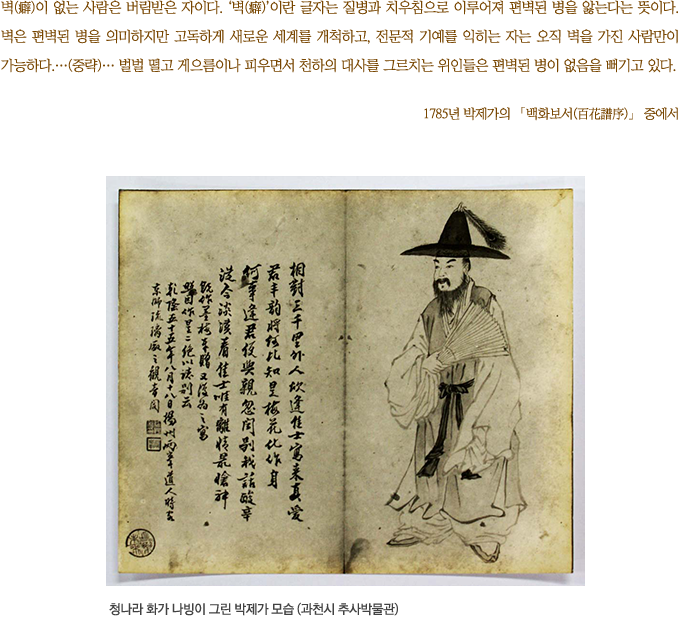 벽(癖)이 없는 사람은 버림받은 자이다. ‘벽(癖)’이란 글자는 질병과 치우침으로 이루어져 편벽된 병을 앓는다는 뜻이다.
벽은 편벽된 병을 의미하지만 고독하게 새로운 세계를 개척하고, 전문적 기예를 익히는 자는 오직 벽을 가진 사람만이
가능하다.…(중략)… 벌벌 떨고 게으름이나 피우면서 천하의 대사를 그르치는 위인들은 편벽된 병이 없음을 뻐기고 있다.
1785년 박제가의 「백화보서(百花譜序)」 중에서
相對三千里外人欣逢佳士寫來真愛
君丰韻將何比知是梅花化作身
何事逢君便與親忽聞別我話酸辛
從今淡漠看佳士唯有離情最愴神
既作墨梅奉贈又復為之寫
照因作是二絕以誌別云
乾隆五十五年八月十八日揚州兩峯道人時客
京師琉璃廠之觀音閣
청나라 화가 나빙이 그린 박제가 모습 (과천시 추사박물관)